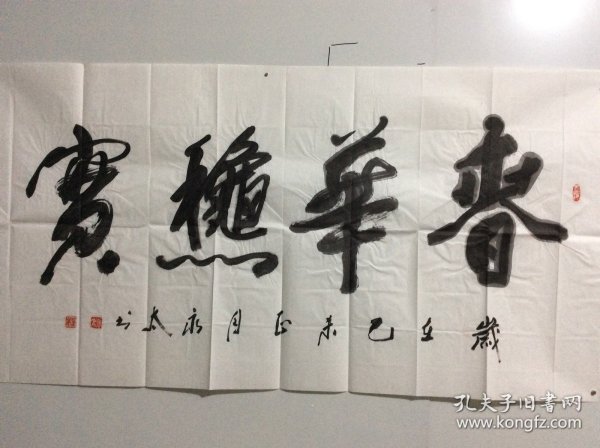 春華龝實
歲在己未正月永太书
孔夫子旧书网
www.kongfz.com